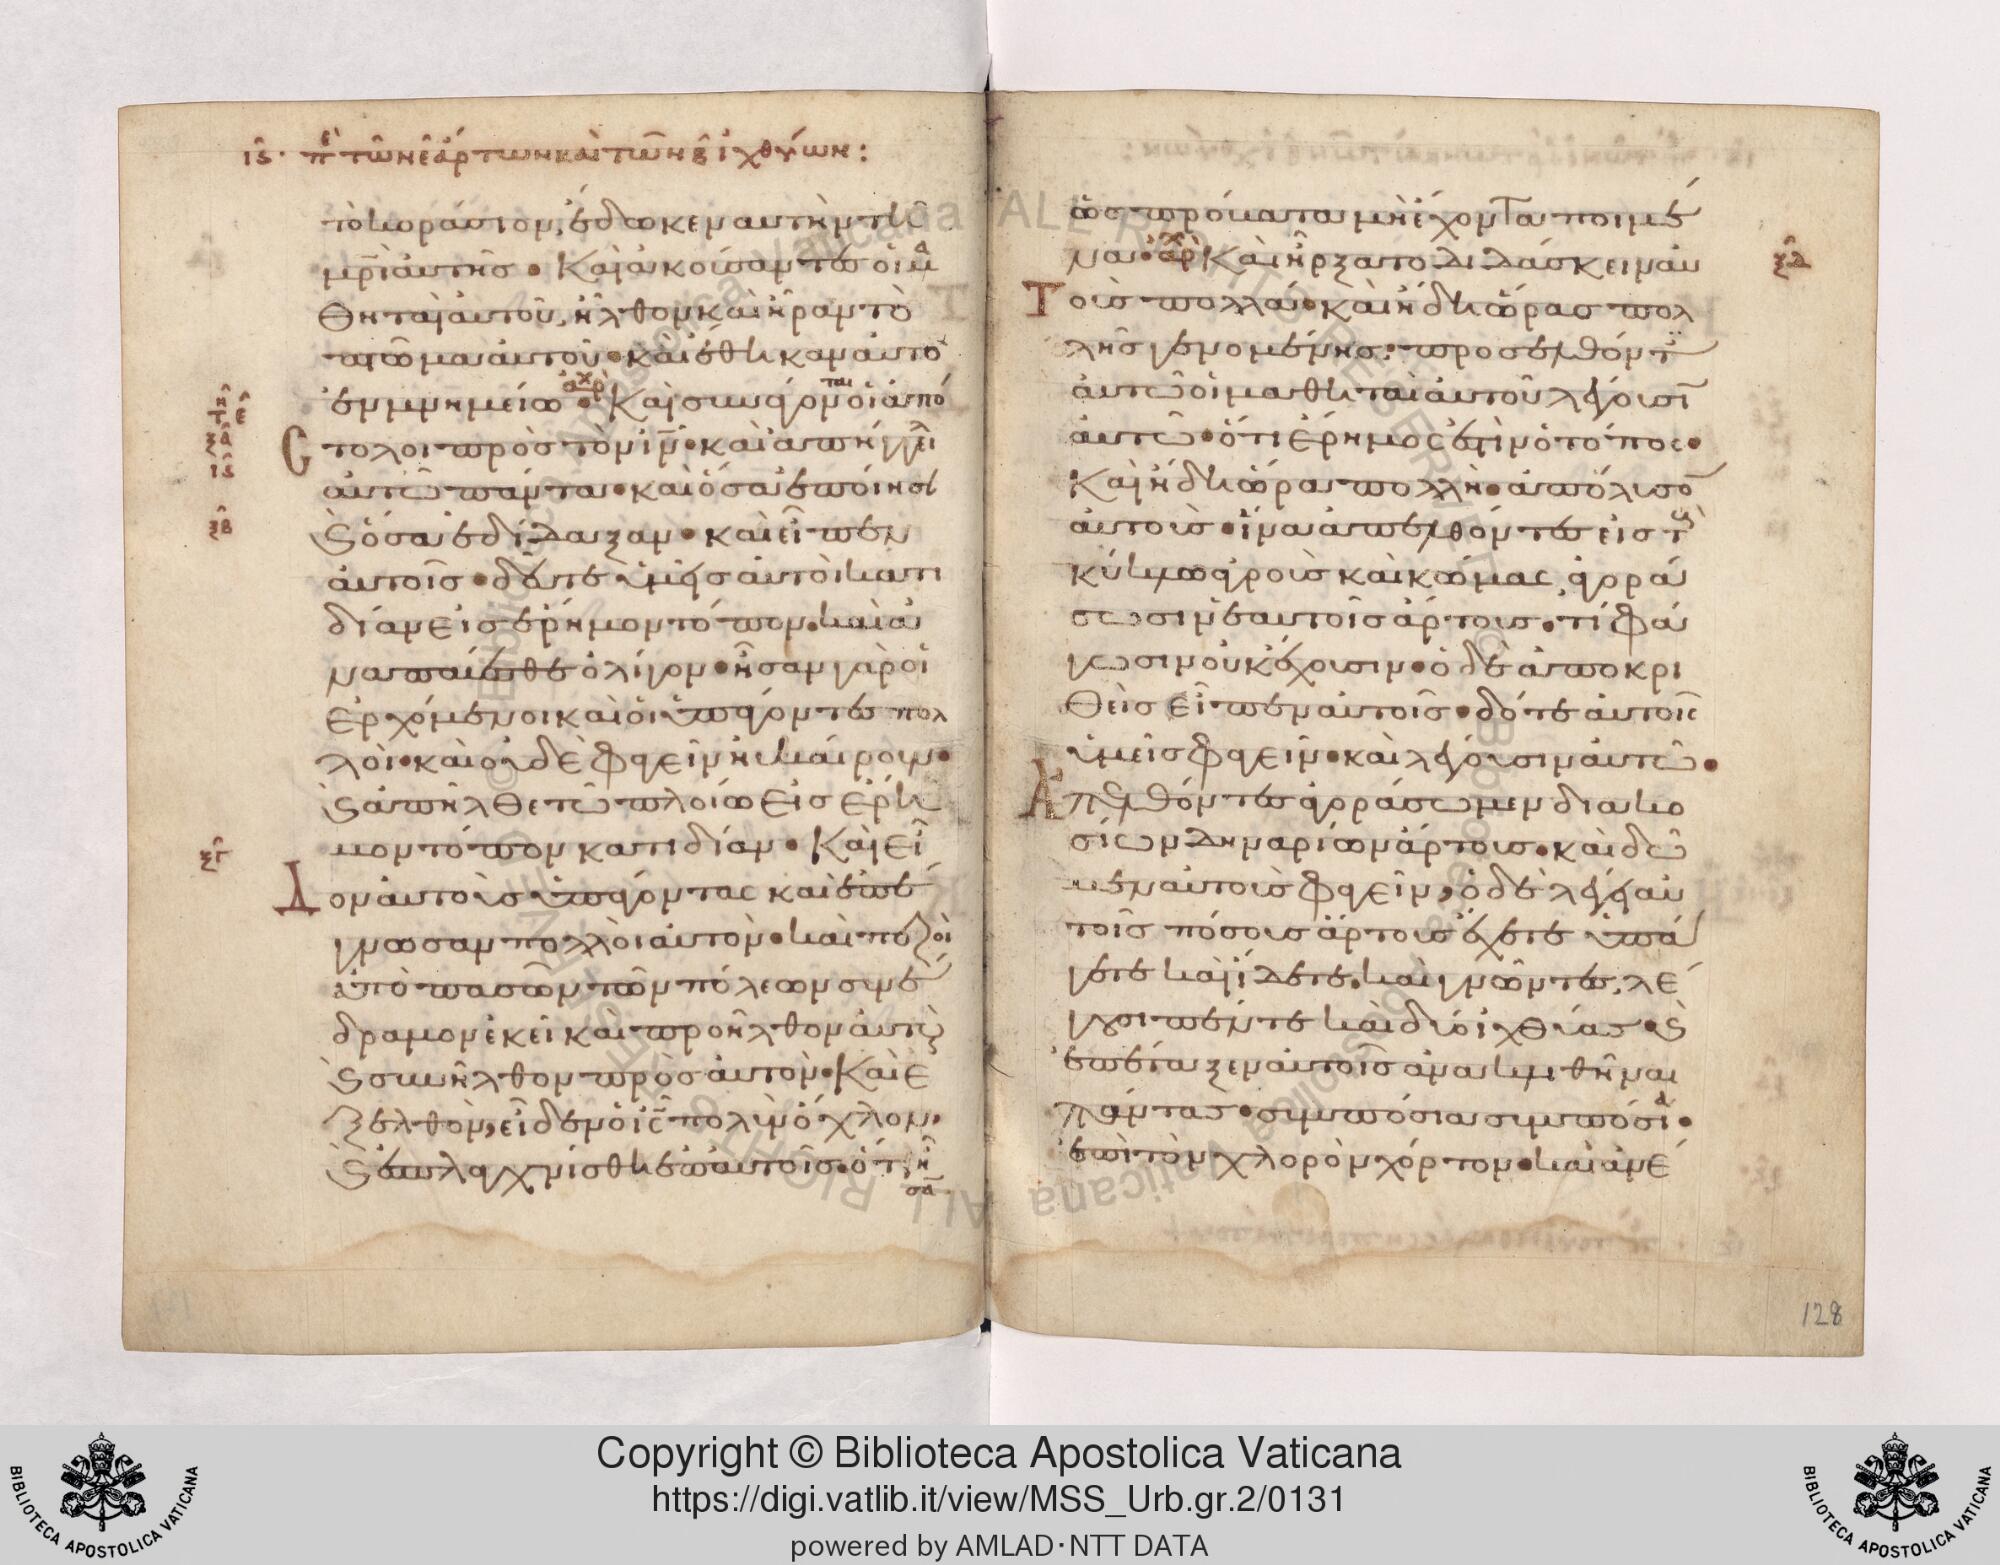 ιϛ· πε τῶν ε ἄρτων καὶ τῶν β ἰχθύων:
τὸ κοράσιον, ἔδωκεν αυτὴν τῆ
μρι ἀυτῆς. Καὶ ἀκούσαντες οἱ μα
θηταὶ ἀυτοῦ, ἦλθον καὶ ἦραν τὸ
πτῶμα ἀυτοῦ. καὶ ἔθηκαν ἀυτὸ
ἐν μνημείω. αρχ Καὶ συνάγονται οἱ ἀπό
στολοι πρὸς τὸν ιν. καὶ ἀπήγγει
ἀυτῶ πάντα. καὶ ὅσα ἐποίησα
ϗ ὅσα ἐδίδαξαν. καὶ εἶπεν
ἀυτοῖς. δεῦτε ὑμεῖς ἀυτοὶ κατι
δίαν εἰς ἔρημον τόπον. καὶ ἀ
ναπαύεσθε ὀλίγον. ἦσαν γὰρ οἱ
ἐρχόμενοι καὶ οἱ ὑπάγοντες πολ
λοὶ. καὶ ουδὲ φαγεῖν ηυκαίρουν.
ϗ ἀπῆλθε τῶ πλοίω εἰς ἔρη
μον τόπον κατιδίαν. Καὶ εἶ
δον ἀυτοὺς ὑπάγοντας καὶ ἐπέ
γνωσαν πολλοὶ ἀυτὸν. καὶ πεζοὶ
ἀπὸ πασῶν τῶν πόλεων συνέ
δραμον ἐκεῖ καὶ προῆλθον ἀυτοὺς
ϗ συνῆλθον πρὸς ἀυτὸν. Καὶ ἐ
ξελθὼν, εἶδεν ὁ ις πολὺν ὄχλον.
ϗ ἐσπλαγχνίσθη ἐπ ἀυτοῖς. ὅτι ἦ
σαν
ξα
ιϛ
ξβ
ξγ
ὡς πρόβατα μὴ ἔχοντα ποιμέ
να. αρχ Καὶ ἤρξατο διδάσκειν ἀυ
τοὺς πολλά. καὶ ἤδη ὥρας πολ
λῆς γενομένης. προσελθόντες
ἀυτῶ οἱ μαθηταὶ ἀυτοῦ λέγουσιν
ἀυτῶ. ὅτι ἔρημος ἐστὶν ὁ τόπος.
Καὶ ἤδη ὥρα πολλὴ. ἀπόλυσον
ἀυτοὺς. ἵνα ἀπελθόντες εἰς τοὺς
κύκλω ἀγροὺς καὶ κώμας, ἀγορά
σωσιν ἑαυτοῖς ἄρτους. τί φά
γωσιν οὐκ ἔχουσιν. ὁ δὲ ἀποκρι
θεὶς εἶπεν ἀυτοῖς. δότε ἀυτοῖς
ὑμεῖς φαγεῖν. καὶ λέγουσιν ἀυτῶ.
Ἀπελθόντες ἀγοράσωμεν διακο
σίων δηναρίων ἄρτους. καὶ δῶ
μεν ἀυτοῖς φαγεῖν, ὁ δὲ λέγει αυ
τοῖς πόσους ἄρτους ἔχετε ὑπά
γετε καὶ ἴδετε. καὶ γνῶντες, λέ
γουσι πέντε καὶ δύο ἰχθύας. ϗ
ἐπέταξεν ἀυτοῖς ἀνακλιθῆναι
πάντας. συμπόσια συμπόσια.
ἐπὶ τὸν χλορὸν χόρτον. καὶ ἀνέ
ξδ
128
Copyright © Biblioteca Apostolica Vaticana
https://digi.vatlib.it/view/MSS_Urb.gr.2/0131
powered by AMLAD·NTT DATA
BIBLIOTECA APOSTOLICA VATICANA
BIBLIOTECA APOSTOLICA VATICANA